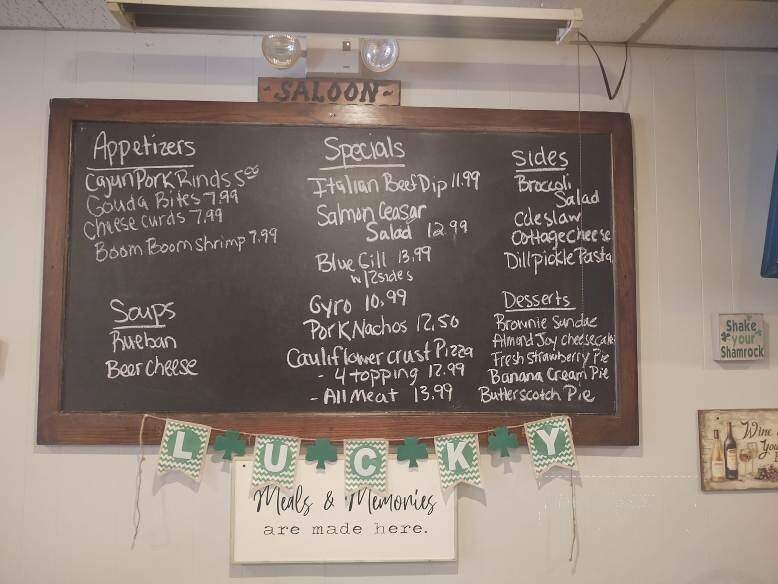 SALOON
Appetizers
Cajun Pork Rinds 5.00
Gouda Bites 7.99
Cheese curds 7.99
Boom Boom shrimp 7.99
Soups
Rueban
Beer cheese
Specials
Italian Beef Dip 11.99
Salmon Ceasar
Salad 12.99
Blue Gill 13.99
w/2sides
Gyro 10.99
Pork Nachos 12.50
Cauliflower crust Pizza
- 4 topping 12.99
- All Meat 13.99
Sides
Broccoli
Salad
Coleslaw
Cottage cheese
Dill pickle Pasta
Desserts
Brownie Sundae
Almond Joy cheesecake
Fresh Strawberry Pie
Banana Cream Pie
Butterscotch Pie
LUCKY
Meals & Memories
are made here.
Shake
your
Shamrock
Wine
You